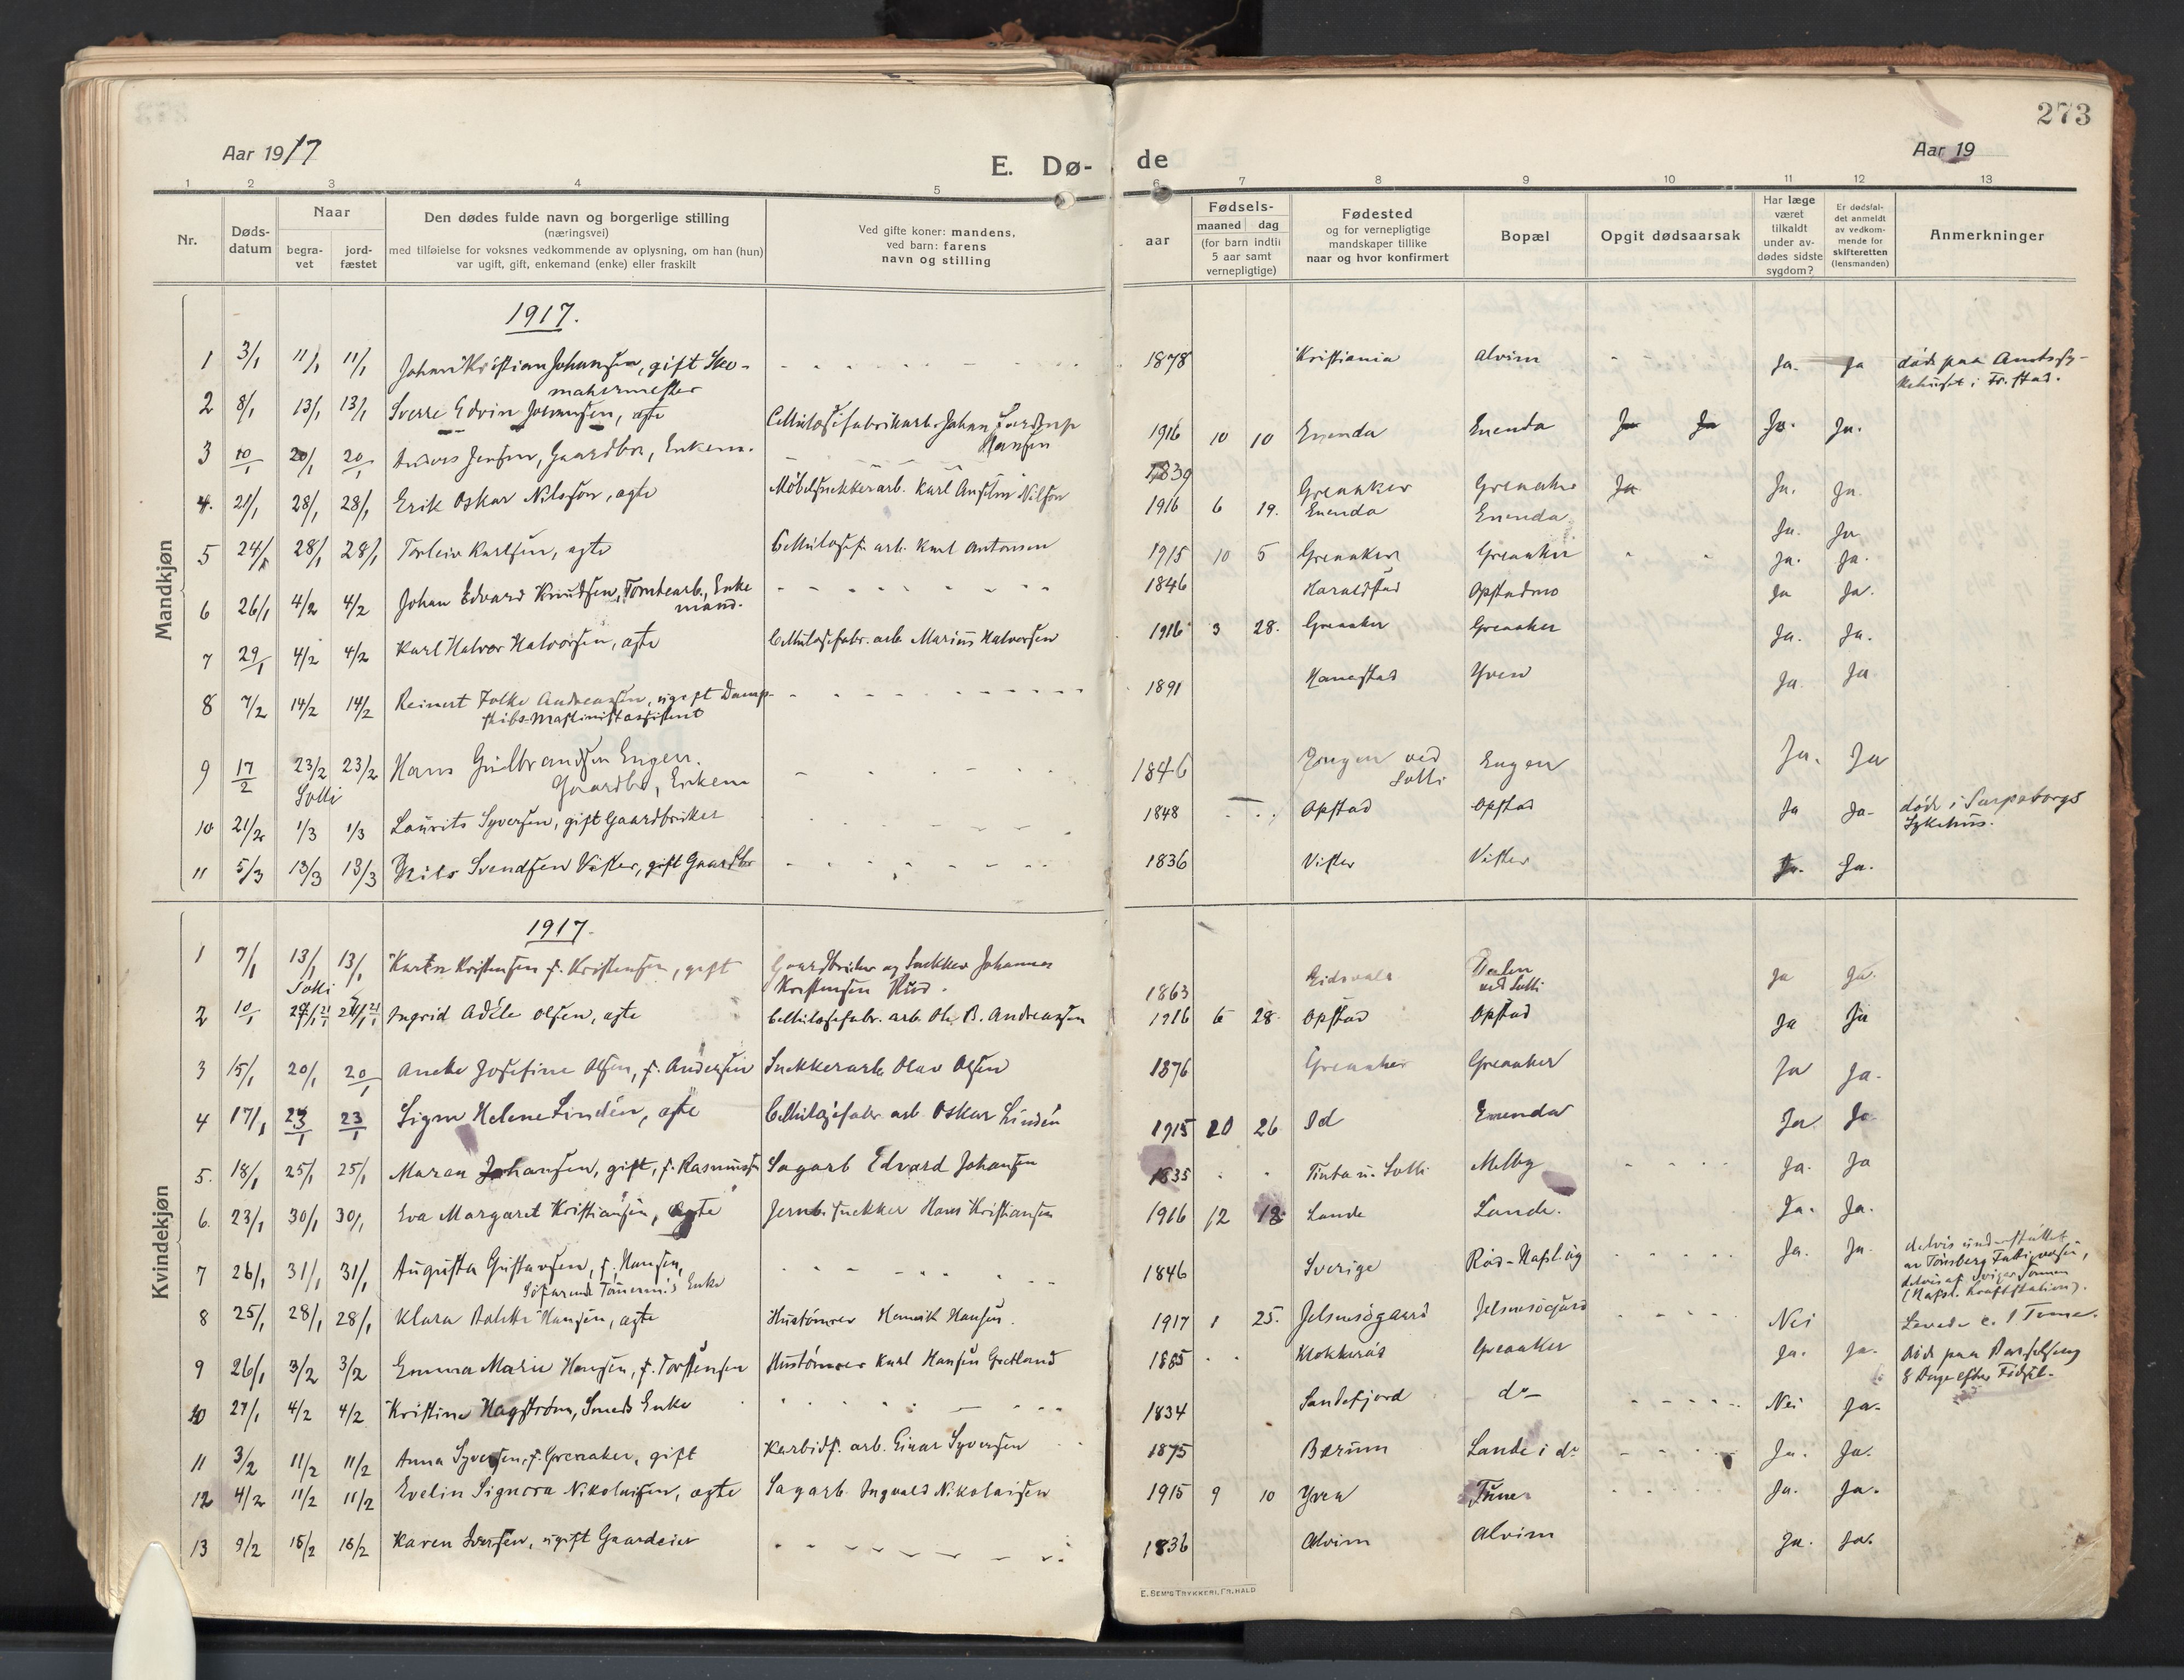 273
Aar 1917
E. Dø-
de
Aar 19
1 2 3 4 5 6 7 8 9 10 11 12 13
Nr.
Døds-
datum
Naar
begra-
vet
jord-
fæstet
Den dødes fulde navn og borgerlige stilling
(næringsvei)
med tilføielse for voksnes vedkommende av oplysning, om han (hun)
var ugift, gift, enkemand (enke) eller fraskilt
Ved gifte koner: mandens,
ved barn: farens
navn og stilling
aar
Fødsels-
maaned dag
(for barn indtil
5 aar samt
vernepligtige)
Fødested
og for vernepligtige
mandskaper tillike
naar og hvor konfirmert
Bopæl
Opgit dødsaarsak
Har læge
været
tilkaldt
under av-
dødes sidste
sygdom?
Er dødsfal-
det anmeldt
av vedkom-
mende for
skifteretten
(lensmanden)
Anmerkninger
Mandkjøn
1917.
1 3/1 11/1 11/1 Johan Kristian Johansen, gift Sko-
makermester
1878 Kristiania Alvim Ja. Ja døde paa Amtssy-
kehuset i Fr.stad.
2 8/1 13/1 13/1 Sverre Edvin Johansen, ægte Cellulosefabrikarb. Johan
Hansen
1916 10 10 Enenda Enenda Ja Ja Ja. Ja.
3 10/1 20/1 20/1 Jensen, Gaardbr, Enkem.
1839 Greaaker Greaaker Ja Ja. Ja.
4. 21/1 28/1 28/1 Erik Oskar Nilsson, ægte Møbelsnekkerarb. Karl Anselm Nilson
1916 6 19. Enenda Enenda Ja. Ja
5 24/1 28/1 28/1 Torleiv Karlsen, ægte Cellulosef. arb. Karl Antonsen
1915 10 5 Greaaker Greaaker Ja. Ja.
6 26/1 4/2 4/2 Johan Edvard Knudsen, Tomtearb., Enke
mand.
1846 Haraldstad Opstadmo Ja Ja.
7 29/1 4/2 4/2 Karl Halvor Halvorsen, ægte Cellulosefabr. arb Marius Halvorsen
1916 3 28. Greaaker Greaaker Ja. Ja.
8 7/2 14/2 14/2 Reinert Folke Andreassen, ugift Damp-
skibs-Maskinistassistent
1891 Hanestad Yven Ja. Ja
9 17/2 23/2 23/2 Hans Gulbrandsen Engen.
Solli Gaardbr, Enkem
1846 Engen ved
Solli
Engen Ja. Ja
10 21/2 1/3 1/3 Laurits Syversen, gift Gaardbruker
1848 Opstad Opstad Ja Ja- døde i Sarpsborgs
Sykehus.
11 5/3 13/3 13/3 Nils Svendsen Vister, gift Gaardbr
1836 Vister Vister Ja. Ja.
Kvindekjøn
1917.
1 7/1 13/1 13/1 Karen Kristensen f. Kristensen, gift Gaardbruker og Snekker Johannes
Solli Kristensen
1863 Eidsvold Dalen
ved Solli
Ja Ja.
2 10/1 21/1 21/1 Ingrid Adéle Olsen, ægte Cellulosefabr. arb. Ole B. Andreassen
1916 6 28. Opstad Opstad Ja Ja
3 15/1 20/1 20/1 Anete Josefine Olsen, f. Andersen Snekkerarb. Olav Olsen
1876 Greaaker Greaaker Ja Ja.
4 17/1 23/1 23/1 Signe Helene Lindén, ægte Cellulosefabr. arb Oskar Lindén
1915 10 26 Id Enenda Ja Ja
5. 18/1 25/1 25/1 Maren Johansen, gift, f. Rasmussen Sagarb Edvard Johansen
1835 Tinta u. Solli Melby Ja. Ja
6. 23/1 30/1 30/1 Eva Margaret Kristiansen, ægte Jernb.snekker Hans Kristiansen
1916 12 18. Lande Lande. Ja. Ja.
7 26/1 31/1 31/1 Augusta Gustavsen, f. Hansen,
Søfarende Tømmerm.s Enke
1846 Sverige Rød-Hafsl.øy Ja. Ja delvis understøttet
av Tønsberg Fattigvæsen,
delvis af Svigersønnen
(Hafsl. Kraftstation).
8 25/1 28/1 28/1 Klara Hansen, ægte Hustømrer Henrik Hansen.
1917 1 25. Jelsnesøgaard Jelsnesøgaard Nei Levede c. 1 Time.
9 26/1 3/2 3/2 Emma Marie Hansen, f. Torstensen Hustømrer Karl Hansen Grotland
1885 Klokkerød Greaaker Ja. Ja. død paa Barselseng
8 Dage efter Fødsel.
10 27/1 4/2 4/2 Kristine Hagstrøm, Smeds Enke
1834 Sandefjord do Nei Ja.
11 3/2 11/2 11/2 Anna Syversen, f. Greaaker, gift Karbidf. arb. Einar Syversen
1875 Bærum Lande i do Ja. Ja.
12 4/2 11/2 11/2 Evelin Signora Nikolaisen, ægte Sagarb. Ingvald Nikolaisen
1915 9 10 Yven Tune Ja. Ja.
13 9/2 16/2 16/2 Karen Iversen, ugift Gaardeier
1836 Alvim Alvim Ja. Ja.
E. SEM'S TRYKKERI, FR.HALD